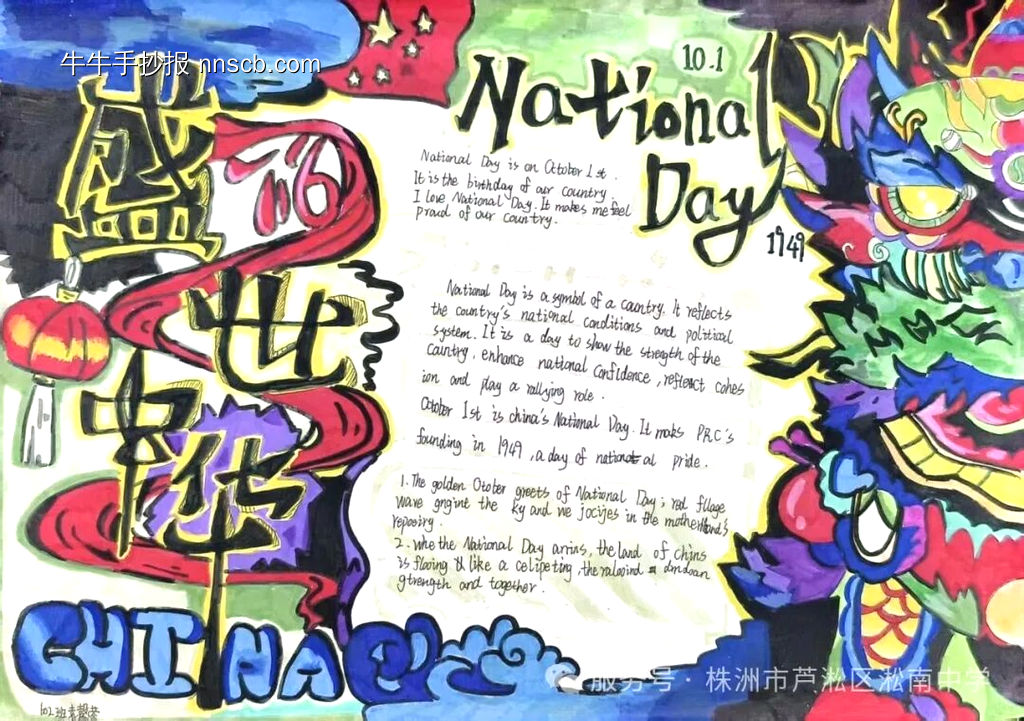 牛牛手抄报 nnscb.com
盛世中华
76
10.1
National
Day
1949
National Day is on October 1st.
It is the birthday of our country.
I love National Day. It makes me feel
proud of our country.
National Day is a symbol of a country. It reflects
the country's national conditions and political
system. It is a day to show the strength of the
country, enhance national confidence, reflect cohes
ion and play a rallying role.
October 1st is china's National Day. It maks PRC's
founding in 1949, a day of national pride.
1. The golden Otober greets of National Day; red fllage
wave gngine the ky and we jocijes in the motherland's
2. whe the National Day arrins, the land of chins
is flowing like a celipeting, the
gtrength and together.
CHINA
102班
服务号·株洲市芦淞区淞南中学